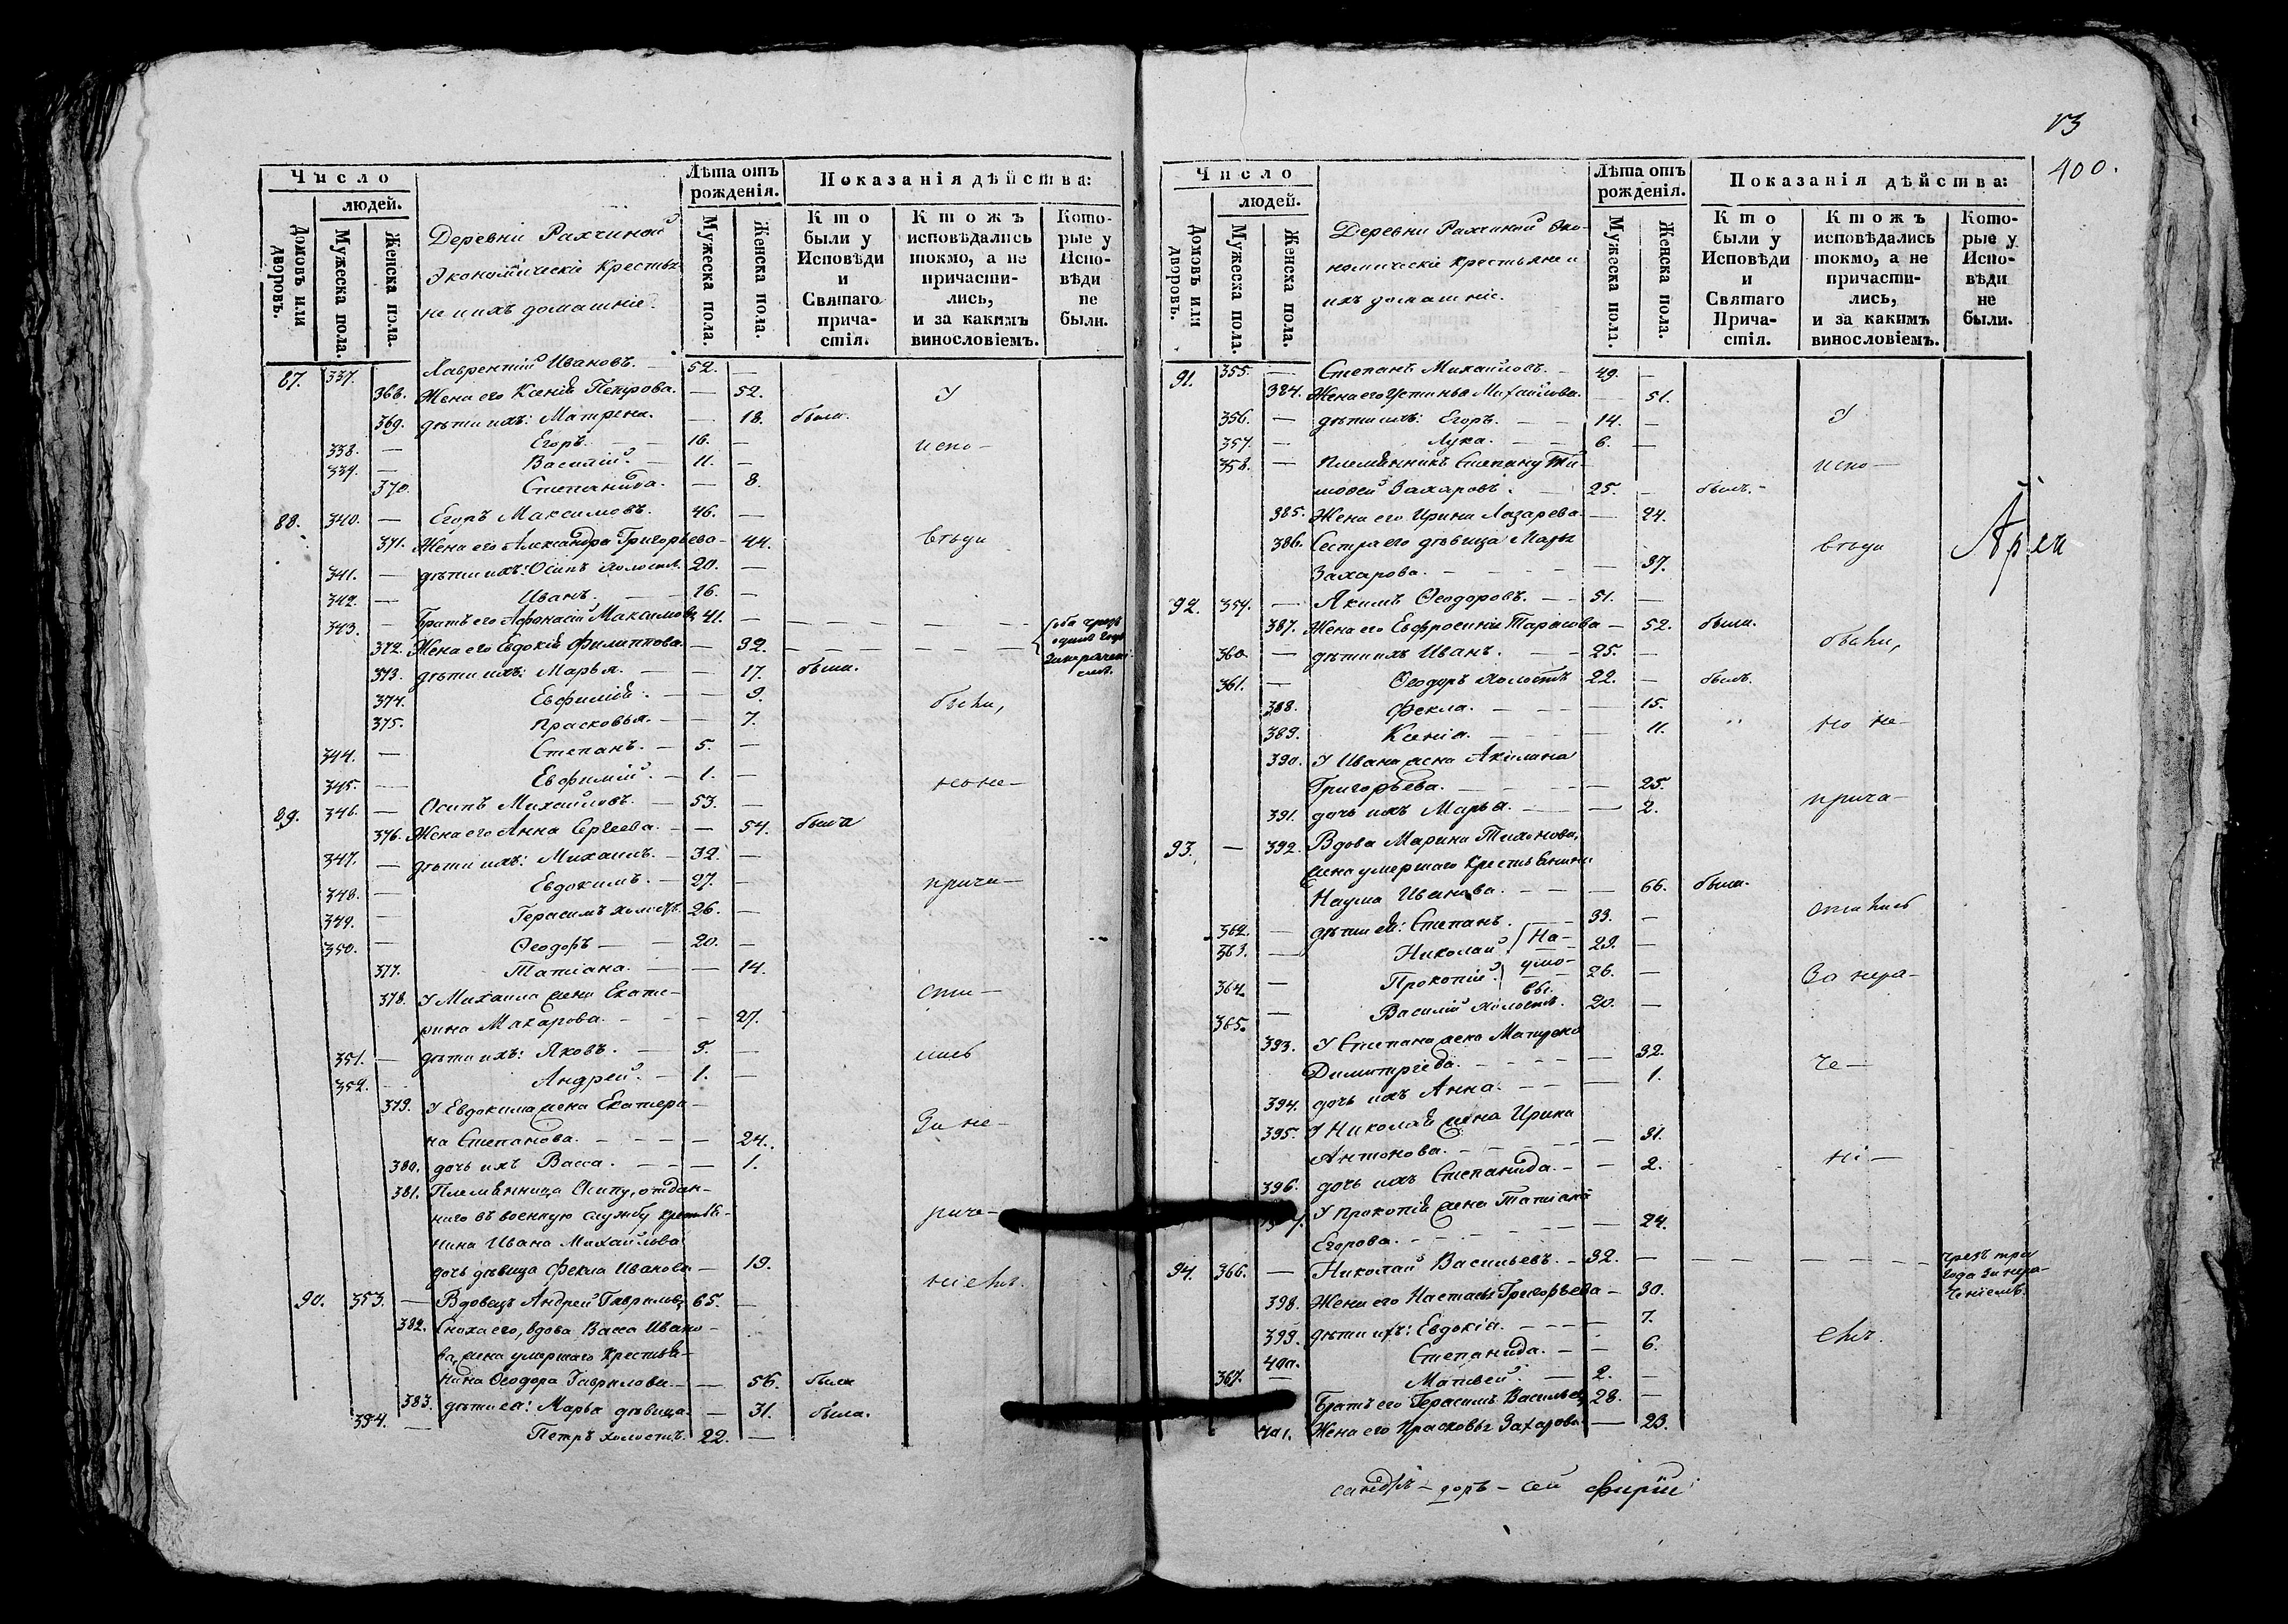 Число
людей.
Домовъ или дворовъ.
Мужеска пола.
Женска пола.
Деревни Рахчиной
Экономическiе Крестья
не и ихъ домашнiе.
Лѣта отъ рожденiя.
Мужеска пола.
Женска пола.
Показанiя дѣйства:
Кто были у Исповѣди и Святаго причастiя.
Ктожъ исповѣдались токмо, а не причастились, и за какимъ винословiемъ.
Которые у Исповѣди не были.
87. 337. Лаврентiй Ивановъ. — 52. —
368. Жена его Ксенiя Петрова. — 52. У
369. дѣти ихъ: Матрена. — 18. была.
338. — Егоръ. — 16. — испо-
339. — Василiй. — 11. —
370. Степанида. — 8.
88. 340. — Егоръ Максимовъ. 46. —
371. Жена его Александра Григорьева — 44. вѣди
341. — дѣти ихъ: Осипъ холостъ. 20. —
342. — Иванъ. — 16. —
343. — Братъ его Афонасiй Максимовъ 41. — оба чрезъ
372. Жена его Евдокiя Филиппова. — 32. одинъ годъ
373. дѣти ихъ: Марья. — 17. была.
374. Евфимiя. — 9. были,
375. Прасковья. — 7.
344. — Степанъ. — 5. —
345. — Евфимiй. — 1. — но не-
89. 346. — Осипъ Михайловъ. — 53. —
376. Жена его Анна Сергеева. — 54. была
347. — дѣти ихъ: Михаилъ. — 32. —
348. — Евдокимъ. — 27. — прича-
349. — Герасимъ холостъ. 26. —
350. — Ѳеодоръ — 20. —
377. Татiана. — 14.
378. У Михаила жена Екате- сти-
рина Макарова. — 27.
351. — дѣти ихъ: Яковъ. — 5. — лись
352. — Андрей. — 1. —
379. У Евдокима жена Екатери-
на Степанова. — 24. За не-
380. дочь ихъ Васса. — 1.
381. Племянница Осипу, отдан-
наго въ военную службу крестья-
нина Ивана Михайлова
дочь дѣвица Фекла Иванова — 19.
90. 353. — Вдовецъ Андрей Гавриловъ 65. —
382. Сноха его, вдова Васса Ивано-
ва, жена умершаго Крестья-
нина Ѳеодора Гаврилова. — 56. была
383. дѣти ея: Марья дѣвица. — 31. была.
354. — Петръ холостъ. 22. —
400.
Число
людей.
Домовъ или дворовъ.
Мужеска пола.
Женска пола.
Деревни Рахчиной Эко-
номическiе крестьяне и
ихъ домашнiе.
Лѣта отъ рожденiя.
Мужеска пола.
Женска пола.
Показанiя дѣйства:
Кто были у Исповѣди и Святаго Причастiя.
Ктожъ исповѣдались токмо, а не причастились, и за какимъ винословiемъ.
Которые у Исповѣди не были.
91. 355. — Степанъ Михайловъ. — 49. —
384. Жена его Устинья Михайлова. — 51.
356. — дѣти ихъ: Егоръ. — 14. — У
357. — Лука. — 6. —
358. — Племянникъ Степану Ти- испо-
моѳей Захаровъ. — 25. — былъ.
385. Жена его Ирина Лазарева — 24.
386. Сестра его дѣвица Марья вѣди
Захарова. — 37.
92. 359. — Якимъ Ѳеодоровъ. — 51. —
387. Жена его Евфросинiя Тарасова — 52. была.
360. — дѣти ихъ Иванъ. — 25. — были,
361. — Ѳеодоръ холостъ 22. — былъ.
388. Фекла. — 15.
389. Ксенiа. — 11. но не-
390. У Ивана жена Акилина
Григорьева. — 25.
391. дочь ихъ Марья. — 2. прича-
93. — 392. Вдова Марина Тихонова,
жена умершаго Крестьянина
Наума Иванова. — 66. была.
362. — дѣти ей: Степанъ. — 33. — стились
363. — Николай На- 29. —
364. — Прокопiй умо- 26. — За нера-
365. — Василiй холостъ. вы. 20. —
393. У Степана жена Матрена
Димитрiева. — 32. че-
394. дочь ихъ Анна. — 1.
395. У Николая жена Ирина
Антонова. — 31.
396. дочь ихъ Степанида. — 2. нi-
У Прокопiя жена Татiана
Егорова. — 24.
94. 366. — Николай Васильевъ. — 32. — чрезъ три
года за нера-
ченiемъ.
398. Жена его Настасья Григорьева — 30.
399. дѣти ихъ: Евдокiя. — 7.
400. Степанида. — 6. емъ.
367. — Матвей. — 2. —
Братъ его Герасимъ Васильевъ 28. —
401. Жена его Прасковья Захарова — 23.